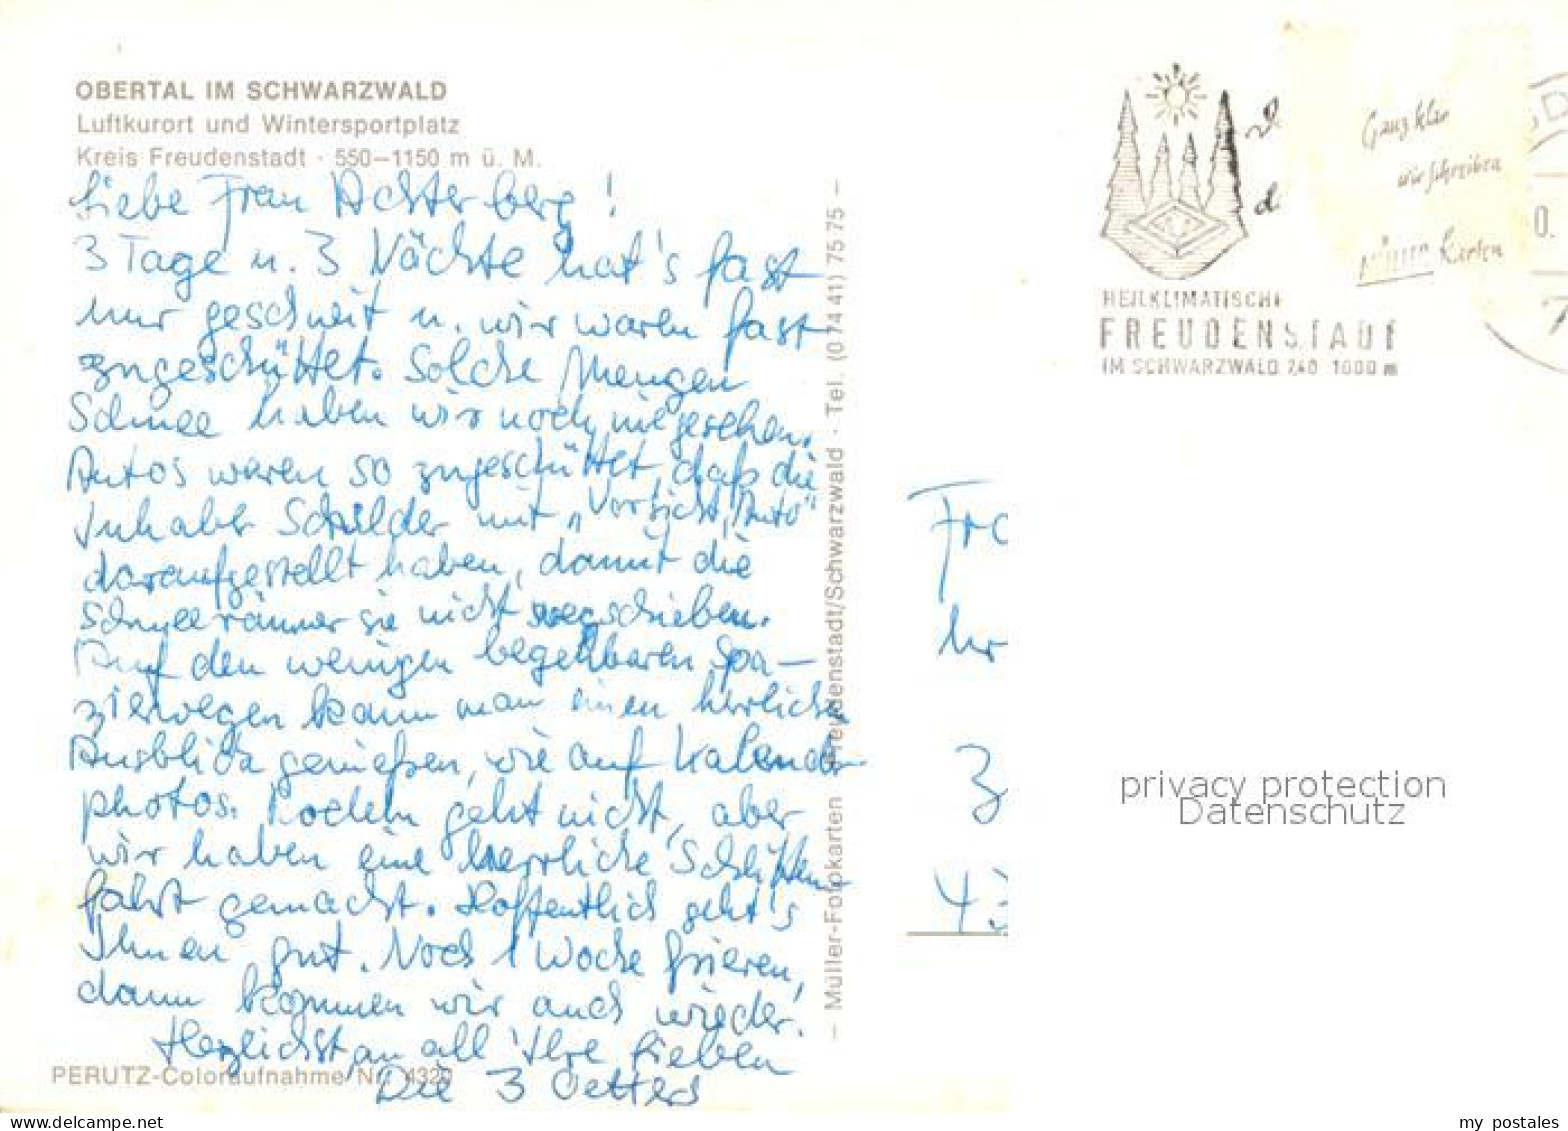 OBERTAL IM SCHWARZWALD
Luftkurort und Wintersportplatz
Kreis Freudenstadt · 550–1150 m ü. M.
Liebe Frau Achterberg!
3 Tage u. 3 Nächte hat's fast
nur geschneit u. wir waren fast
zugeschüttet. Solche Mengen
Schnee haben wir noch nie gesehen.
Autos waren so zugeschüttet, daß die
Inhaber Schilder mit „Vorsicht, Auto"
daraufgestellt haben, damit die
Schneeräumer sie nicht wegschieben.
Auf den wenigen begehbaren Spa-
zierwegen kann man einen herrlichen
Ausblick genießen, wie auf Kalender-
photos. Rodeln geht nicht, aber
wir haben eine herrliche Schlitten-
fahrt gemacht. Hoffentlich geht's
Ihnen gut. Noch 1 Woche frieren,
dann kommen wir auch wieder.
Herzlichst an all Ihre Lieben
Die 3 Oetters
PERUTZ-Coloraufnahme Nr. 4320
– Müller-Fotokarten Freudenstadt/Schwarzwald · Tel. (0 74 41) 75 75 –
HEILKLIMATISCHE
FREUDENSTADT
IM SCHWARZWALD 740 1000 m
Ganz klar
wir schreiben
Karten
0.
7
Fra
hr
3
43
privacy protection
Datenschutz
my postales